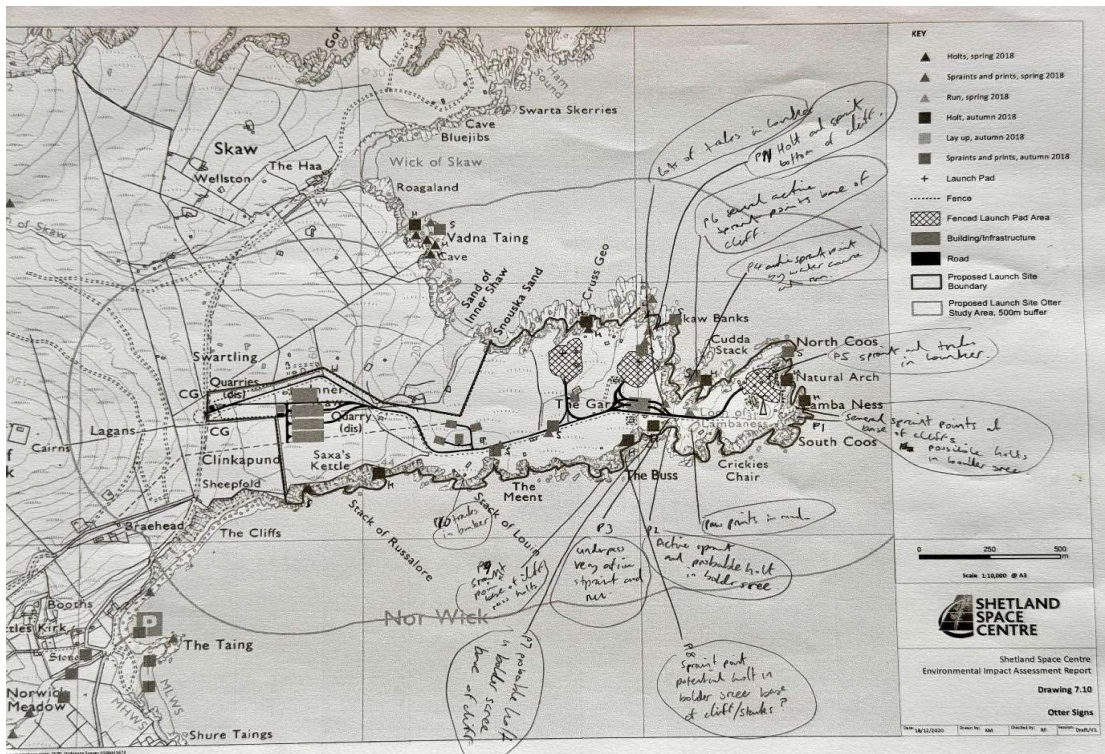 Swarta Skerries
Cave
Bluejibs
Skaw
The Haa
Wellston
Wick of Skaw
Roagaland
W
of Skaw
H
S
Vadna Taing
Cave
Sand of
Inner Skaw
Snouska Sand
Cruss Geo
Skaw Banks
Cudda
Stack
North Coos
S
Natural Arch
H
Lamba Ness
South Coos
Crickies
Chair
Lambaness
The Garths
Swartling
Quarries
(dis)
CG
CG
Quarry
(dis)
Lagans
Cairns
Clinkapund
Saxa's
Kettle
Sheepfold
Braehead
The Cliffs
Stack of Russalore
H
Stack of Louin
The
Meent
S
S
The Buss
Nor Wick
Booths
Kirk
The Taing
MLWS
MHWS
Norwick
Meadow
Shure Taings
P
lots of tracks in bunker
Holt and spraint
bottom of cliff.
P6 several active
spraint points base of
cliff
P4 active spraint point
by water course
P5 spraint and tracks
in bunker.
P1
several spraint points at
base of cliffs
possible holts
in boulder scree
paw prints in mud
P2
Active spraint
and probable holt
in bolder scree
P3
underpass
very active
spraint and
run
P10 tracks
in bunker
P9
base of cliff
P7 probable
in bolder scree
base of cliff
P8
Spraint point
potential holt in
bolder scree base
of cliff/stacks?
KEY
Holts, spring 2018
Spraints and prints, spring 2018
Run, spring 2018
Holt, autumn 2018
Lay up, autumn 2018
Spraints and prints, autumn 2018
Launch Pad
Fence
Fenced Launch Pad Area
Building/Infrastructure
Road
Proposed Launch Site
Boundary
Proposed Launch Site Otter
Study Area, 500m buffer
0 250 500
m
Scale 1:10,000 @ A3
SHETLAND
SPACE
CENTRE
Shetland Space Centre
Environmental Impact Assessment Report
Drawing 7.10
Otter Signs
Date: 18/12/2020 Drawn by: KM Checked by: Version: Draft/V1